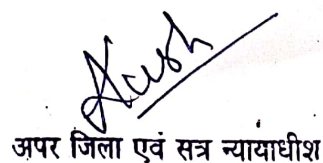 अपर जिला एवं सत्र न्यायाधीश